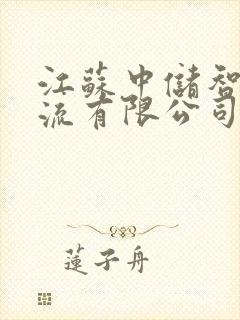 江蘇中儲智
流有限公司
蓮子舟